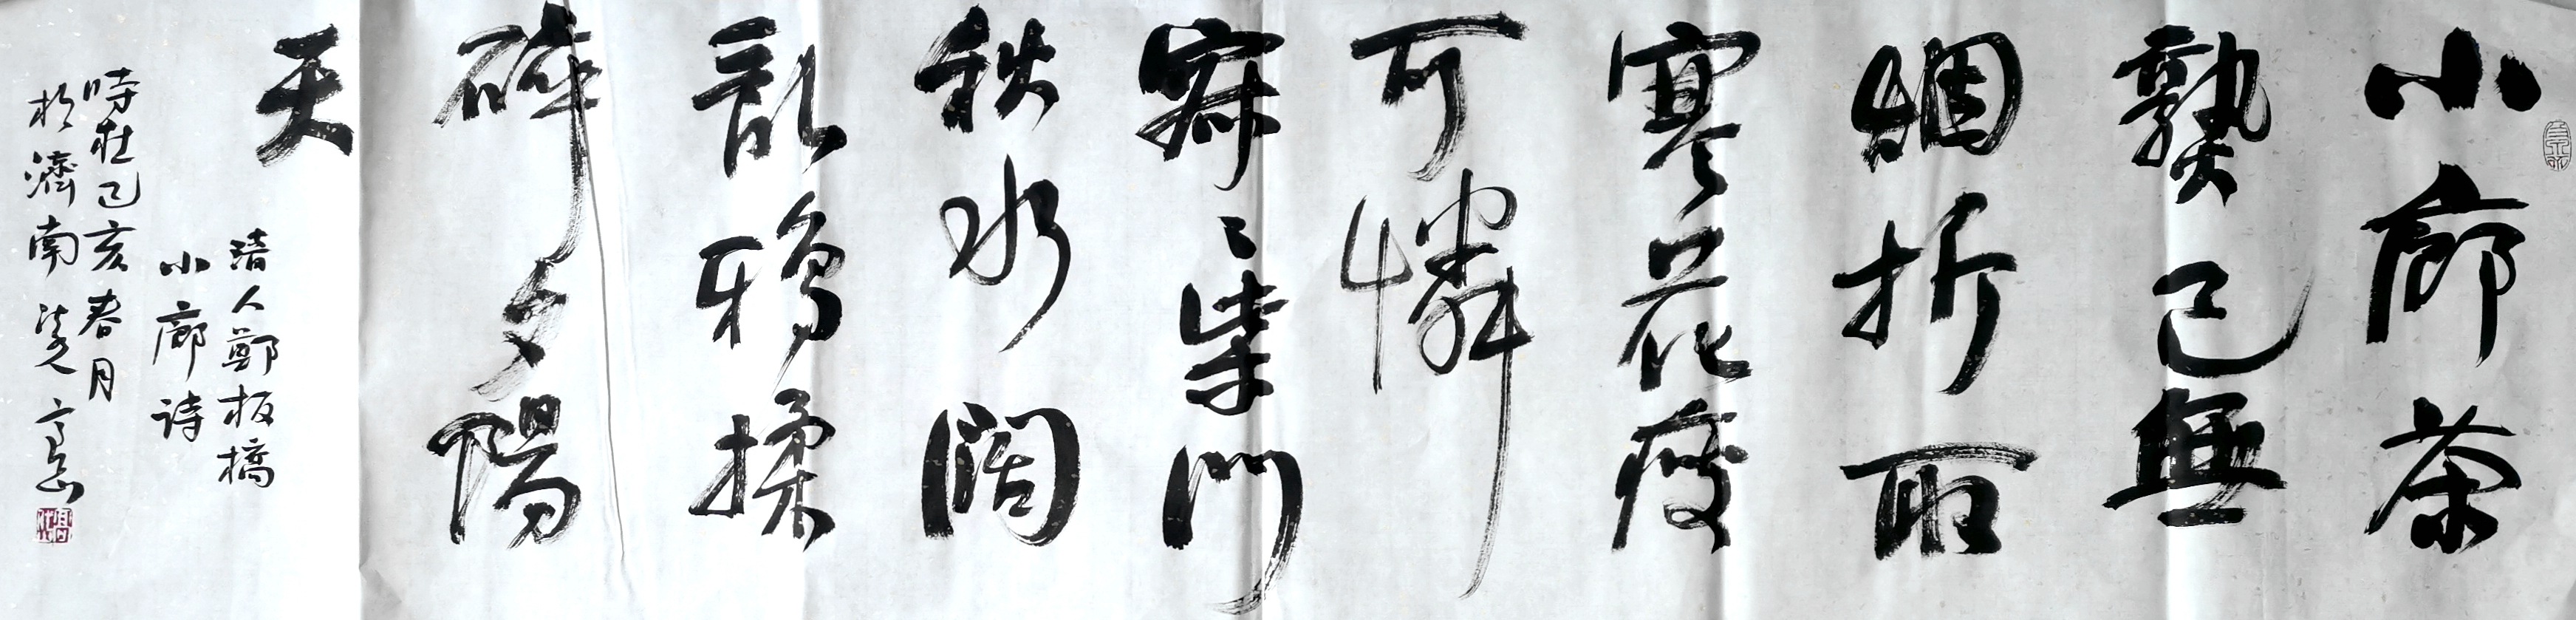 小廊茶
熟已無
烟折取
寒花瘦
可憐
寂〻柴門
秋水闊
亂鴉揉
碎夕陽
天
清人鄭板橋
小廊詩
時在己亥春月
於濟南